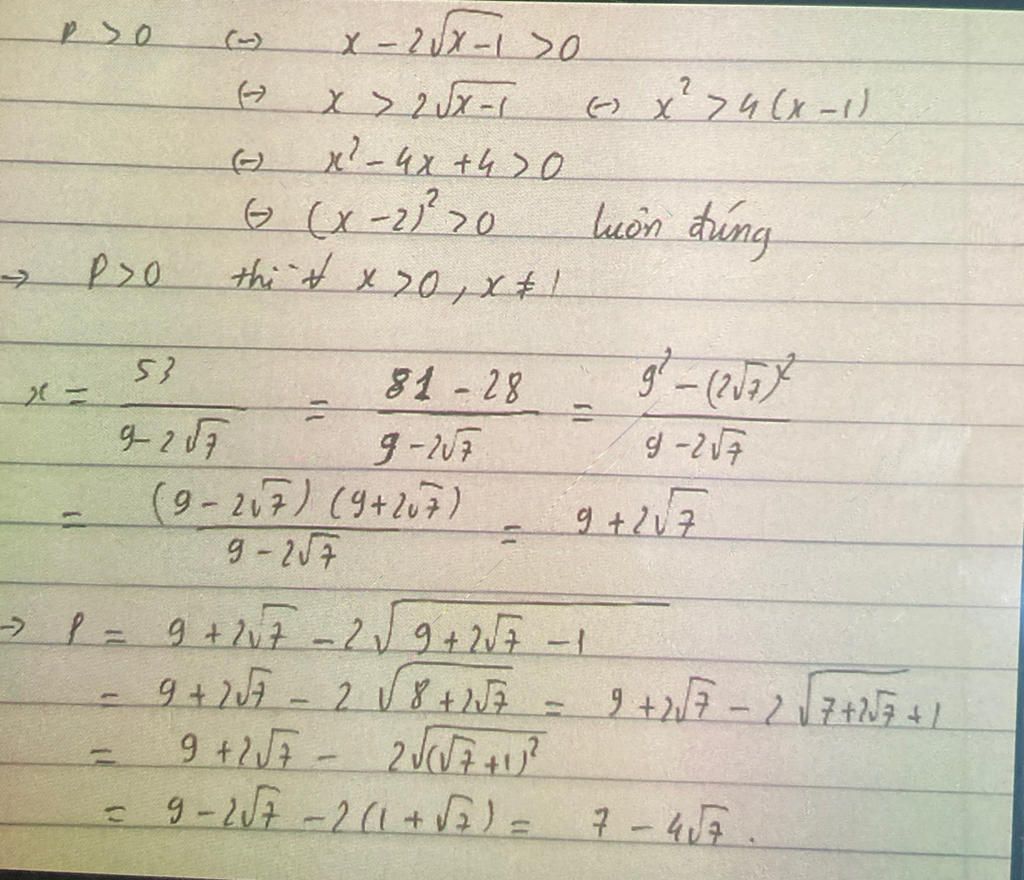 P > 0 (-) x - 2√(x-1) > 0
(-) x > 2√(x-1) (-) x² > 4(x-1)
(-) x² - 4x + 4 > 0
(-) (x-2)² > 0 luôn đúng
→ P > 0 thì ∀ x > 0, x ≠ 1
x = 53/(9-2√7) = (81-28)/(9-2√7) = (9²-(2√7)²)/(9-2√7)
= (9-2√7)(9+2√7)/(9-2√7) = 9+2√7
→ P = 9+2√7 - 2√(9+2√7-1)
= 9+2√7 - 2√(8+2√7) = 9+2√7 - 2√(7+2√7+1)
= 9+2√7 - 2√((√7+1)²)
= 9-2√7 - 2(1+√7) = 7 - 4√7.